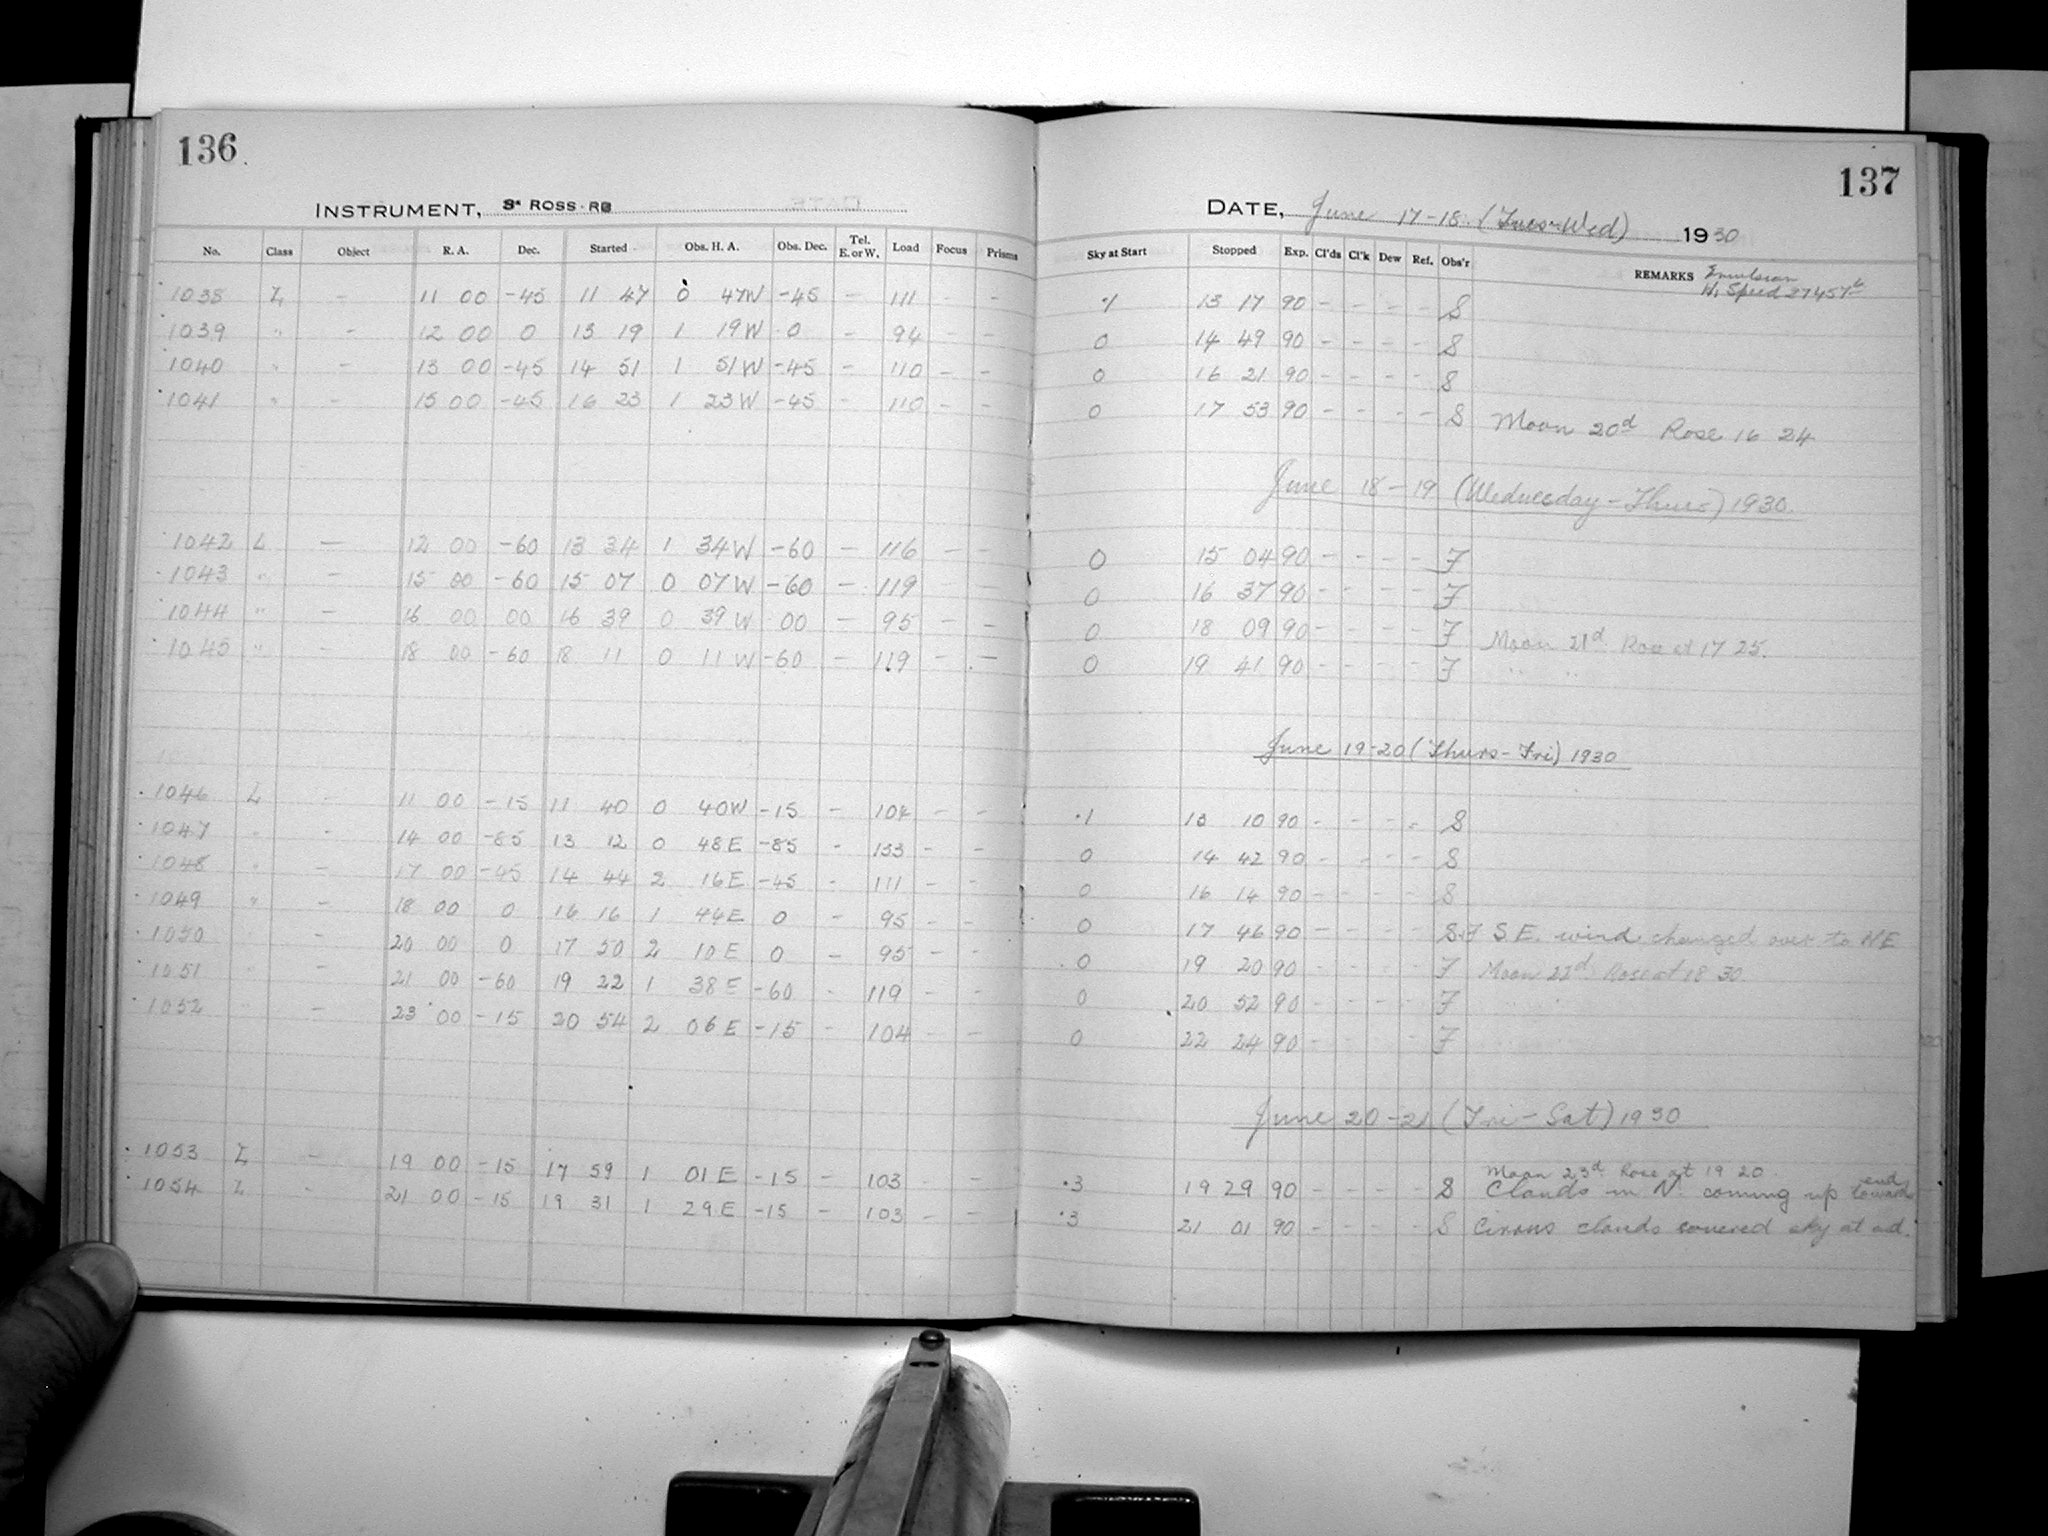 136
INSTRUMENT, 3" ROSS-RB
No. Class Object R. A. Dec. Started Obs. H. A. Obs. Dec. Tel. E. or W. Load Focus Prisms
1038 L - 11 00 -45 11 47 0 47W -45 - 111 - -
1039 " - 12 00 0 13 19 1 19W 0 - 94 - -
1040 " - 13 00 -45 14 51 1 51W -45 - 110 - -
1041 " - 15 00 -45 16 23 1 23W -45 - 110 - -
1042 L - 12 00 -60 13 34 1 34W -60 - 116 - -
1043 " - 15 00 -60 15 07 0 07W -60 - 119 - -
1044 " - 16 00 00 16 39 0 39W 00 - 95 - -
1045 " - 18 00 -60 18 11 0 11W -60 - 119 - -
1046 L - 11 00 -15 11 40 0 40W -15 - 104 - -
1047 " - 14 00 -85 13 12 0 48E -85 - 133 - -
1048 " - 17 00 -45 14 44 2 16E -45 - 111 - -
1049 " - 18 00 0 16 16 1 44E 0 - 95 - -
1050 " - 20 00 0 17 50 2 10E 0 - 95 - -
1051 " - 21 00 -60 19 22 1 38E -60 - 119 - -
1052 " - 23 00 -15 20 54 2 06E -15 - 104 - -
1053 L - 19 00 -15 17 59 1 01E -15 - 103 - -
1054 L - 21 00 -15 19 31 1 29E -15 - 103 - -
137
DATE, June 17-18 (Tues-Wed) 1930
Sky at Start Stopped Exp. Cl'ds Cl'k Dew Ref. Obs'r REMARKS Emulsion
Hi Speed 27457
13 17 90 - - - - S
0 14 49 90 - - - - S
0 16 21 90 - - - - S
0 17 53 90 - - - - S Moon 20d Rose 16 24
June 18-19 (Wednesday-Thurs) 1930.
0 15 04 90 - - - - F
0 16 37 90 - - - - F
0 18 09 90 - - - - F Moon 21d Rose at 17 25.
0 19 41 90 - - - - F " "
June 19-20 (Thurs-Fri) 1930
.1 13 10 90 - - - - S
0 14 42 90 - - - - S
0 16 14 90 - - - - S
0 17 46 90 - - - - S.F S.E. wind changed over to NE
0 19 20 90 - - - - F Moon 22d Rose at 18 30
0 20 52 90 - - - - F
0 22 24 90 - - - - F
June 20-21 (Fri-Sat) 1930
Moon 23d Rose at 19 20.
.3 19 29 90 - - - - S Clouds in N. coming up toward end
.3 21 01 90 - - - - S Cirrus clouds covered sky at